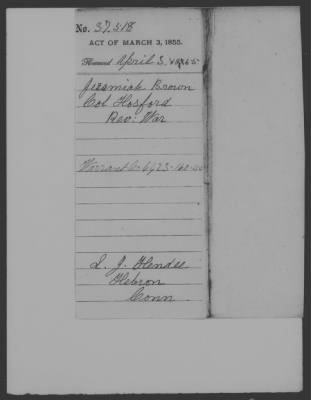 No. 37518
ACT OF MARCH 3, 1855.
April 3
Jeremiah Brown
Col Hosford
Rev. War
Warrant 6923-160-55
L. J. Hendee
Hebron
Conn